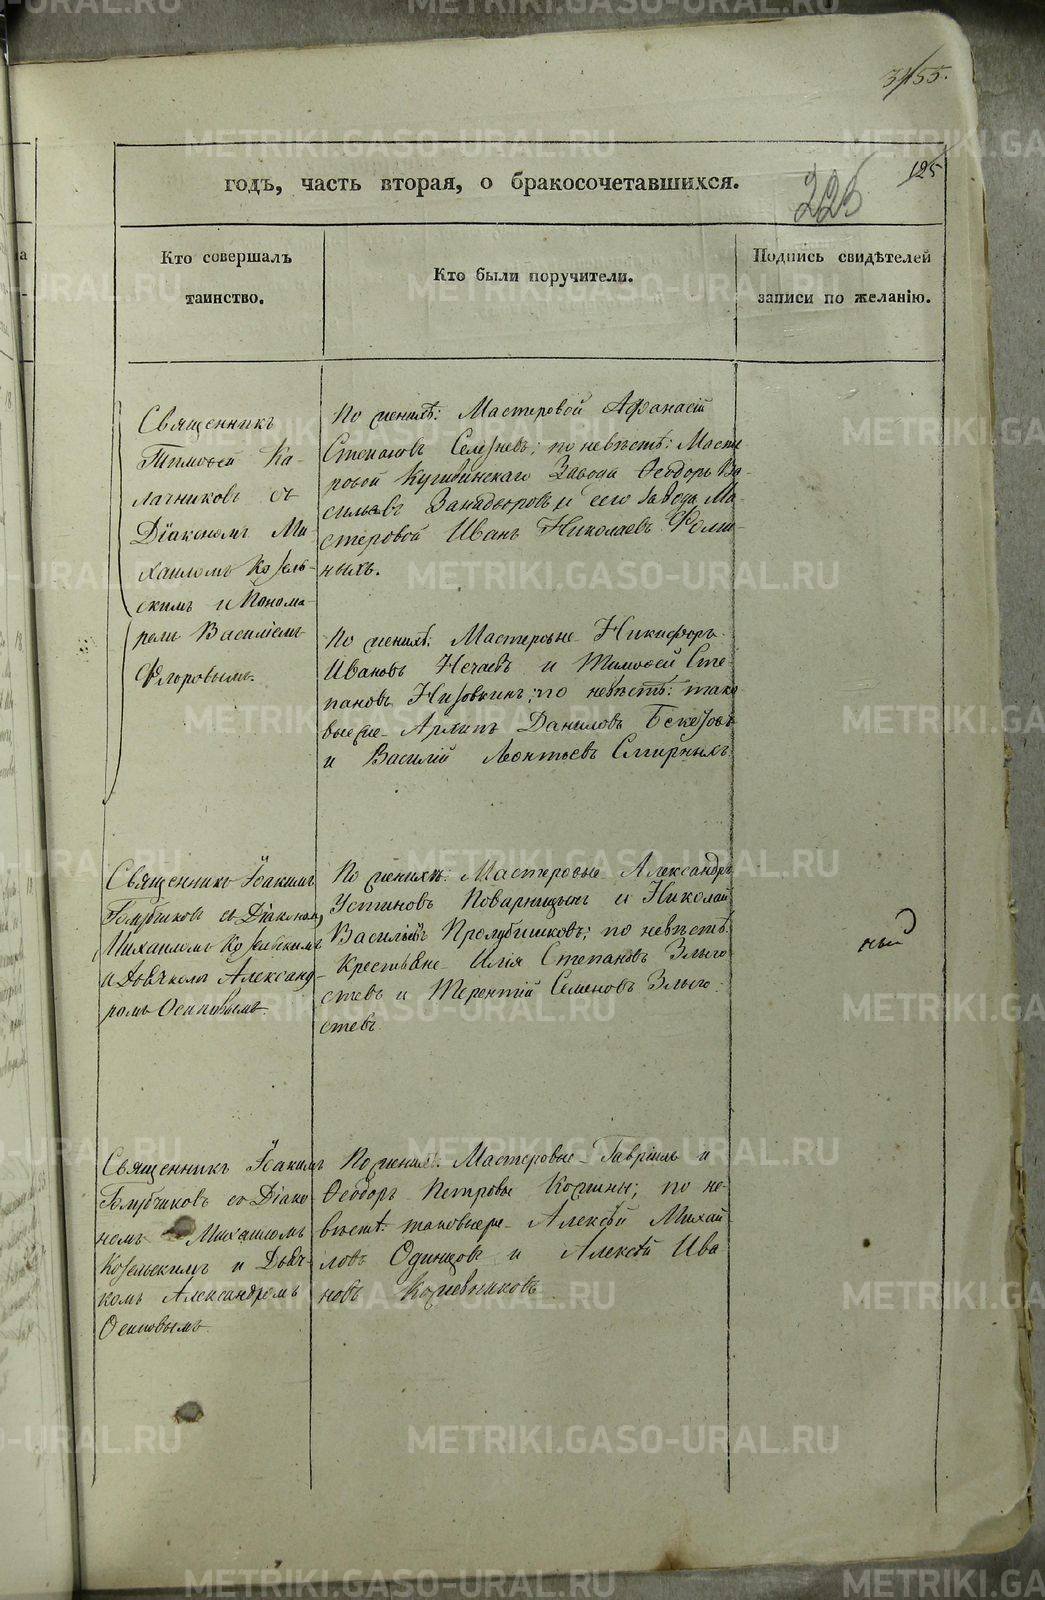 3155.
125
225
годъ, часть вторая, о бракосочетавшихся.
Кто совершалъ
таинство.
Кто были поручители.
Подпись свидѣтелей
записи по желанію.
Священникъ
Тимофей Ка-
лачниковъ съ
Діакономъ Ми-
хаиломъ Козель-
скимъ и Понома-
ремъ Василіемъ
Флоровымъ.
По женихѣ: Мастеровой Афанасій
Степановъ Селезневъ; по невѣстѣ: Масте-
ровой Кушвинскаго Завода Ѳеодоръ Ва-
сильевъ и сего Завода Ма-
стеровой Иванъ Николаевъ Ѳоми-
ныхъ.
По женихѣ: Мастеровые Никифоръ
Ивановъ Нечаевъ и Тимофей Сте-
пановъ Низовкинъ; по невѣстѣ: тако-
выеже Архипъ Даниловъ Бекетовъ
и Василій Леонтьевъ Смирныхъ.
Священникъ Іоакимъ
Голубчиковъ съ Діакономъ
Михаиломъ Козельскимъ
и Дьячкомъ Александ-
ромъ Осиповымъ.
По женихѣ: Мастеровые Александръ
Устиновъ Поварницынъ и Николай
Васильевъ Пролубщиковъ; по невѣстѣ:
Крестьяне Илія Степановъ Злыго-
стевъ и Терентій Семеновъ Злыго-
стевъ
ный
Священникъ Іоакимъ
Голубчиковъ со Діако-
номъ Михаиломъ
Козельскимъ и Дьяч-
комъ Александромъ
Осиповымъ
По женихѣ: Мастеровые Гавріилъ и
Ѳеодоръ Петровы Кожины; по не-
вѣстѣ: таковыеже Алексѣй Михай-
ловъ Одинцовъ и Алексѣй Ива-
новъ Кожевниковъ
METRIKI.GASO-URAL.RU